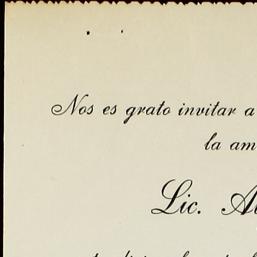 Nos es grato invitar a
la am
Lic. Al